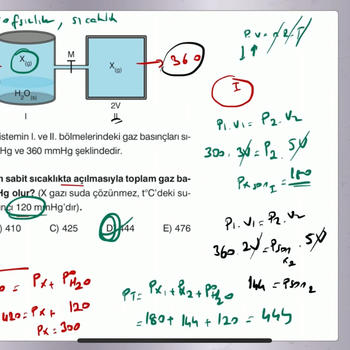 sıcaklık
P.V=n.R.T
M
X(g)
X(g)
360
H₂O(s)
I
2V
II
I
P₁.V₁=P₂.V₂
300.3V=P₂.5V
Pxson₁=180
sistemin I. ve II. bölmelerindeki gaz basınçları sı-
Hg ve 360 mmHg şeklindedir.
n sabit sıcaklıkta açılmasıyla toplam gaz ba-
Hg olur? (X gazı suda çözünmez, t°C'deki su-
ncı 120 mmHg'dır).
) 410 C) 425 D) 444 E) 476
P₁.V₁=P₂.V₂
360.2V=Pson x₂.5V
144=Pson₂
0=Px+P°H₂O
420=Px+120
Px=300
PT=Px₁+Px₂+P°H₂O
=180+144+120=444